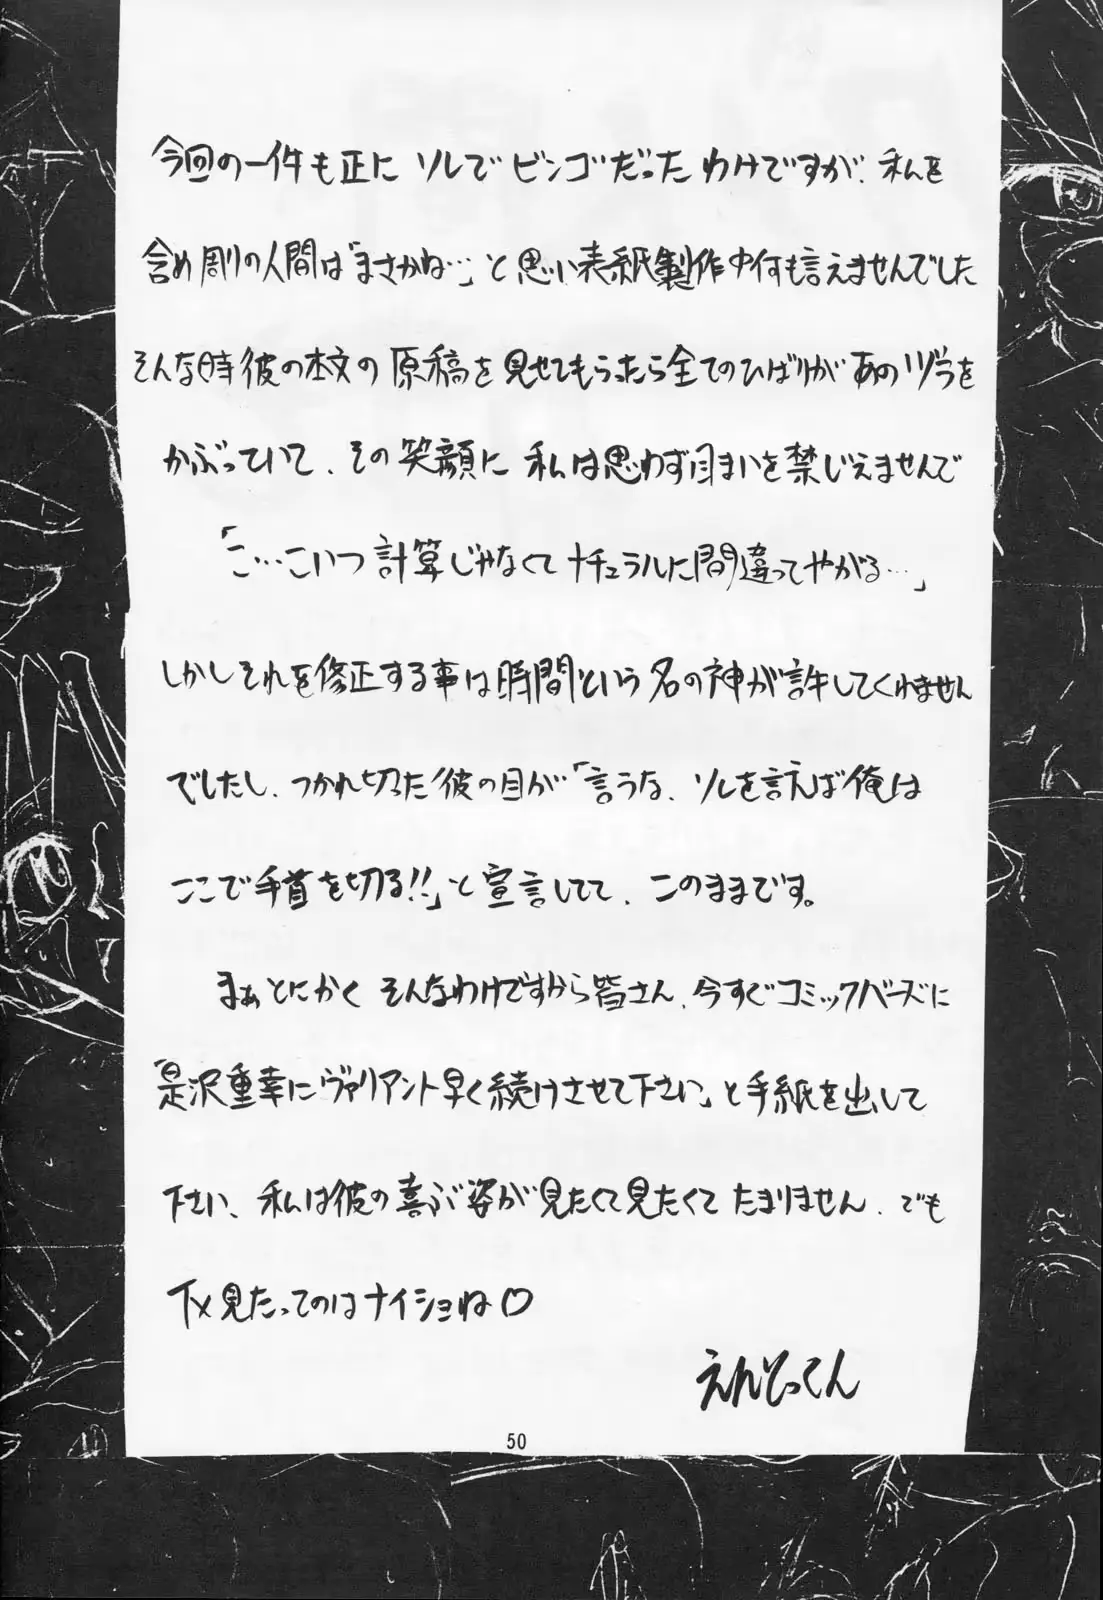 今回の一件も正に ソレで ビンゴだった わけですが、私を
含め周りの人間は「まさかね…」と思い表紙製作中何も言えませんでした
そんな時彼の本文の原稿を見せてもらったら全てのひばりがあのヅラを
かぶっていて、その笑顔に 私は思わず目まいを禁じえませんで
「こ…こいつ計算じゃなくてナチュラルに間違ってやがる…」
しかしそれを修正する事は時間という名の神が許してくれません
でしたし、つかれ切った彼の目が「言うな、ソレを言えば俺は
ここで手首を切る!!」と宣言してて、このままです。
まぁとにかく そんなわけですから皆さん、今すぐコミックバーズに
「是沢重幸にヴァリアント早く続けさせて下さい」と手紙を出して
下さい、私は彼の喜ぶ姿が見たくて見たくて たまりません、でも
下x見たってのはナイショね♡
えんどってん
50